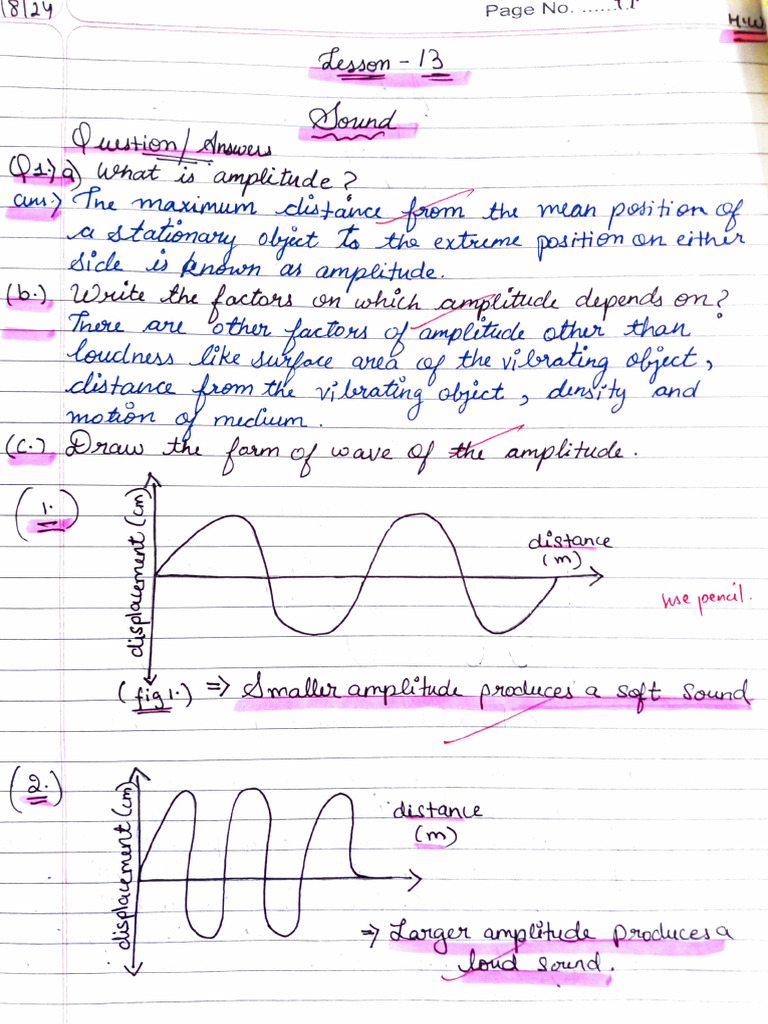 8/24
Page No. ......
H.W
Lesson - 13
Sound
Question/Answers
Q1:) a) What is amplitude?
ans:) The maximum distance from the mean position of
a stationary object to the extreme position on either
side is known as amplitude.
(b.) Write the factors on which amplitude depends on?
There are other factors of amplitude other than
loudness like surface area of the vibrating object,
distance from the vibrating object, density and
motion of medium.
(C.) Draw the form of wave of the amplitude.
(1.)
displacement (cm)
distance
(m)
use pencil.
(fig 1.) ⇒ Smaller amplitude produces a soft sound
(2.)
displacement (cm)
distance
(m)
⇒ Larger amplitude produces a
loud sound.